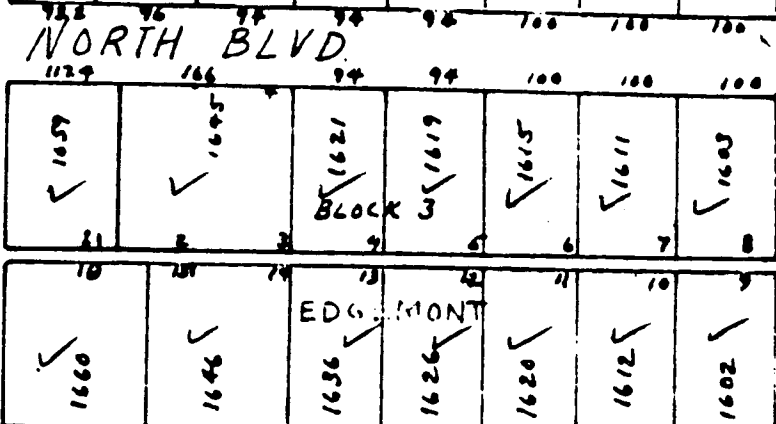 96 94 94 94 100 100 100
NORTH BLVD.
112.4 166 94 94 100 100 100
1659 1645 1621 1619 1615 1611 1603
BLOCK 3
2 3 4 5 6 7 8
14 13 12 11 10 9
EDGEMONT
1660 1646 1636 1626 1620 1612 1602